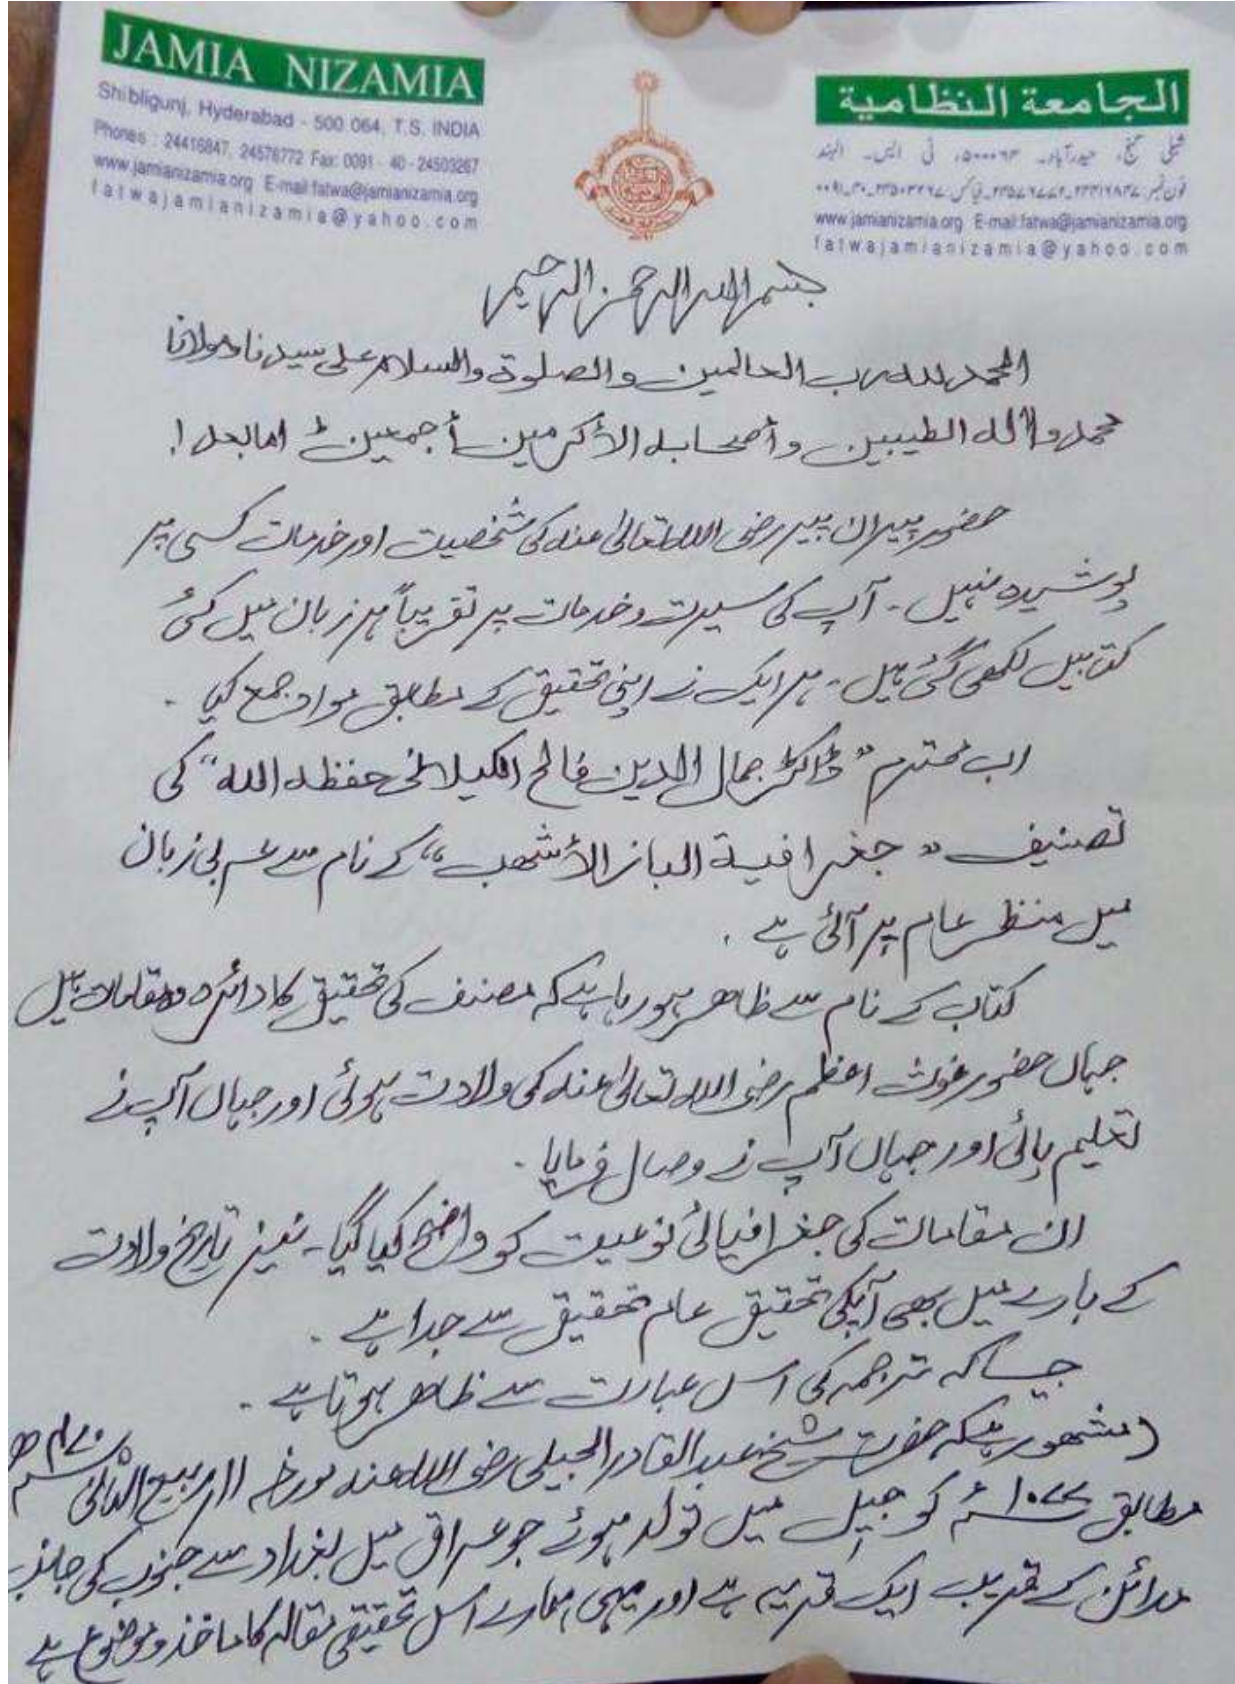 JAMIA NIZAMIA
Shibligunj, Hyderabad - 500 064, T.S. INDIA
Phones : 24416847, 24576772 Fax: 0091 - 40 - 24503267
www.jamianizamia.org E-mail:fatwa@jamianizamia.org
fatwajamianizamia@yahoo.com
الجامعة النظامية
شبلی گنج، حیدرآباد۔ ۵۰۰۰۶۴، ٹی ایس۔ الہند
فون نمبر: ۲۴۴۱۶۸۴۷، ۲۴۵۷۶۷۷۲، فیاکس: ۲۴۵۰۳۲۶۷۔۴۰۔۰۰۹۱
www.jamianizamia.org E-mail:fatwa@jamianizamia.org
fatwajamianizamia@yahoo.com
بسم الله الرحمن الرحيم
الحمد لله رب العالمين والصلوة والسلام على سيدنا ومولانا
محمد وآله الطيبين وأصحابه الأكرمين أجمعين اما بعد !
حضور پیران پیر رضی اللہ تعالیٰ عنہ کی شخصیت اور خدمات کسی پر
پوشیدہ نہیں ۔ آپ کی سیرت وخدمات پر تقریباً ہر زبان میں کئی
کتابیں لکھی گئی ہیں ۔ ہر ایک نے اپنی تحقیق کے مطابق مواد جمع کیا ۔
اب محترم "ڈاکٹر جمال الدین فالح الکیلانی حفظہ اللہ" کی
تصنیف "جغرافية الباز الأشهب" کے نام سے عربی زبان
میں منظر عام پر آئی ہے ۔
کتاب کے نام سے ظاہر ہورہا ہے کہ مصنف کی تحقیق کا دائرہ وہ مقامات ہیں
جہاں حضور غوث اعظم رضی اللہ تعالیٰ عنہ کی ولادت ہوئی اور جہاں آپ نے
تعلیم پائی اور جہاں آپ نے وصال فرمایا ۔
ان مقامات کی جغرافیائی نوعیت کو واضح کیا گیا ۔ نیز تاریخ ولادت
کے بارے میں بھی آپکی تحقیق عام تحقیق سے جدا ہے ۔
جیساکہ ترجمہ کی اس عبارت سے ظاہر ہوتا ہے ۔
(مشہور ہیکہ حضرت شیخ عبدالقادر الجیلی رضی اللہ عنہ مورخہ ۱۱/ ربیع الثانی ۴۷۰ھ
مطابق ۱۰۷۷ء کو جیل میں تولد ہوئے جو عراق میں بغداد سے جنوب کی جانب
مدائن کے قریب ایک قریہ ہے اور یہی ہمارے اس تحقیقی مقالہ کا ماخذ وموضوع ہے